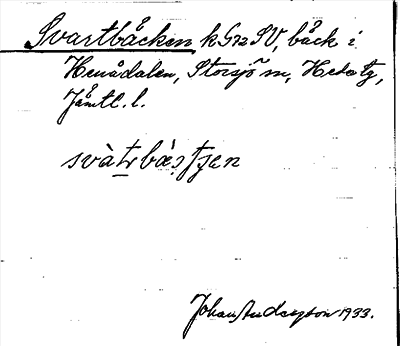 Svartbäcken k G72 SV, bäck i
Henådalen, Storsjö sn, Hede tg,
Jämtl. l.
svàtrbæstʃen
Johan Anderson 1933.